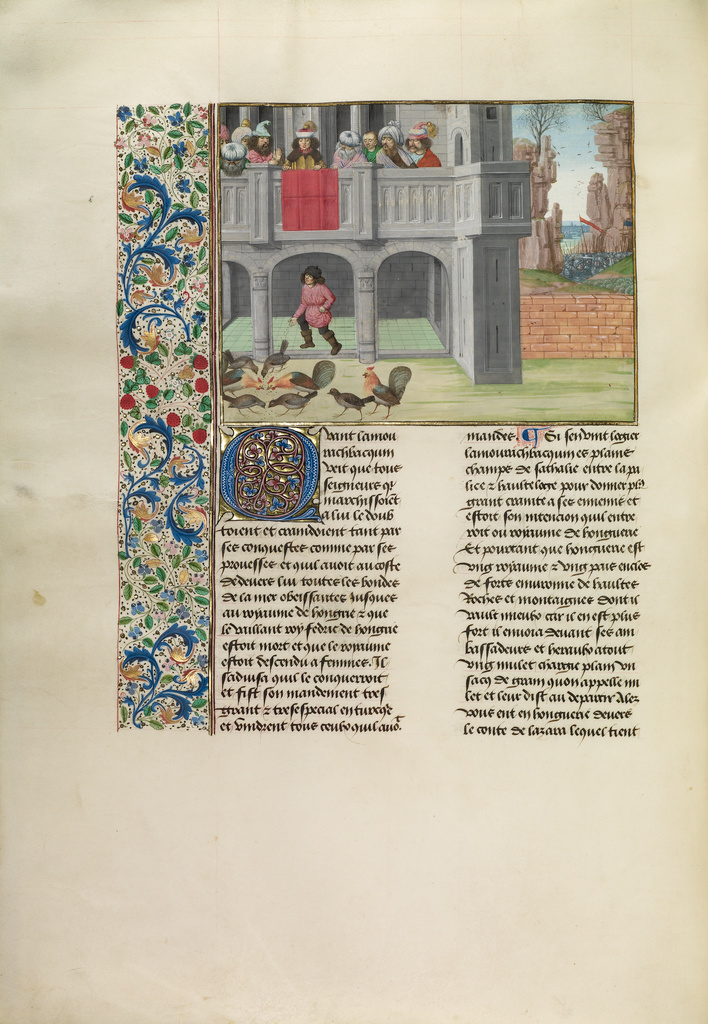 Quant lamou
rathbacquin
veit que tous
seigneurs qui
marchissoiēt
a lui le doub
toient et cremoient tant par
ses conquestes comme par ses
prouesses et quil auoit au coste
de deuers lui toutes les bondes
de la mer obeissantes Jusques
au royaume de hongrie et que
le vaillant roy fedric de hongrie
estoit mort et que le royaume
estoit descendu a femmes. Il
saduisa quil le conquerroit
et fist son mandement tres
grant et tres especial en turquie
et vindrent tous ceulx quil auoit
mandes. ¶ Si sen vint logier
lamourathbacquin es plains
champs de sathalie entre la pa
lice et haulteloge pour donner plus
grant crainte a ses ennemis et
estoit son intencion quil entre
roit ou royaume de honguerie
Et pourtant que honguerie est
vng royaume et vng pais enclos
de forte enuironne de haultes
Roches et montaignes dont il
vault mieulx car il en est plus
fort il enuoia deuant ses am
bassadeurs et heraulx atout
vng mulet chargie plain vn
sacq de grain quon appelle mi
let et leur dist au departir Alez
vous ent en honguerie deuers
le conte de lazara lequel tient